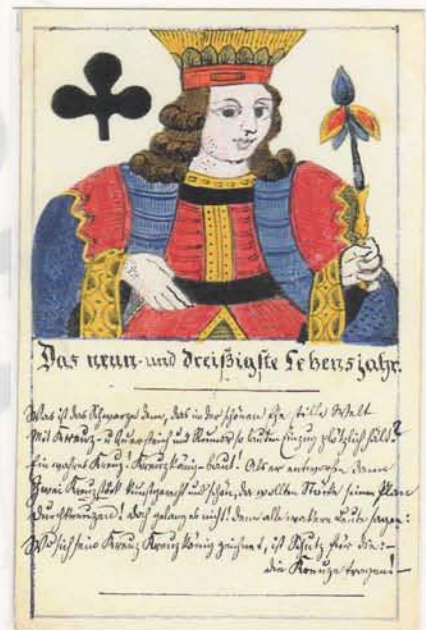 Das neun- und dreißigste Lebensjahr.
Was ist das Schwarze denn, das in der schönen Ehe stille Welt
Mit Kreuz- u Querstrich und Rumor so lauten Einzug plötzlich hält?
Ein wahres Kreuz! Kreuzkönig baut! Als er entworfen dann
Zwei Kreuz kunstgerecht und schön, da wollten seinen Plan
Durchkreuzen! Doch gelang es nicht! denn alle wackern Leute sagen:
Wo sich sein Kreuz Kreuzkönig zeichnet, ist Schutz für die:—
die Kreuze tragen!—